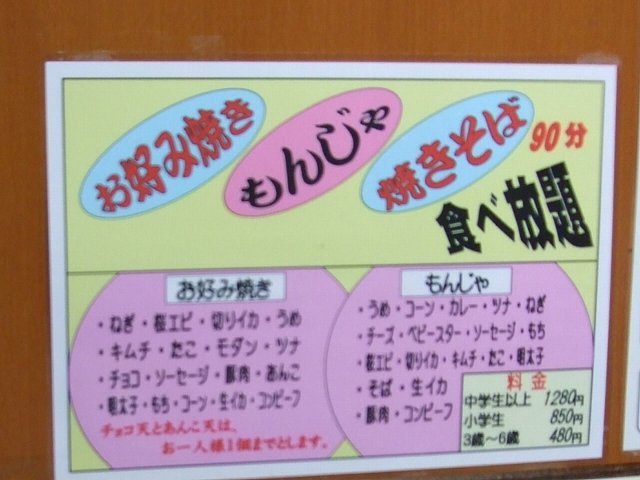 お好み焼き
もんじゃ
焼きそば
90分
食べ放題
お好み焼き
・ねぎ・桜エビ・切りイカ・うめ
・キムチ・たこ・モダン・ツナ
・チョコ・ソーセージ・豚肉・あんこ
・明太子・もち・コーン・生イカ・コンビーフ
チョコ天とあんこ天は、
お一人様1個までとします。
もんじゃ
・うめ・コーン・カレー・ツナ・ねぎ
・チーズ・ベビースター・ソーセージ・もち
・桜エビ・切りイカ・キムチ・たこ・明太子
・そば・生イカ
・豚肉・コンビーフ
料金
中学生以上 1280円
小学生 850円
3歳～6歳 480円